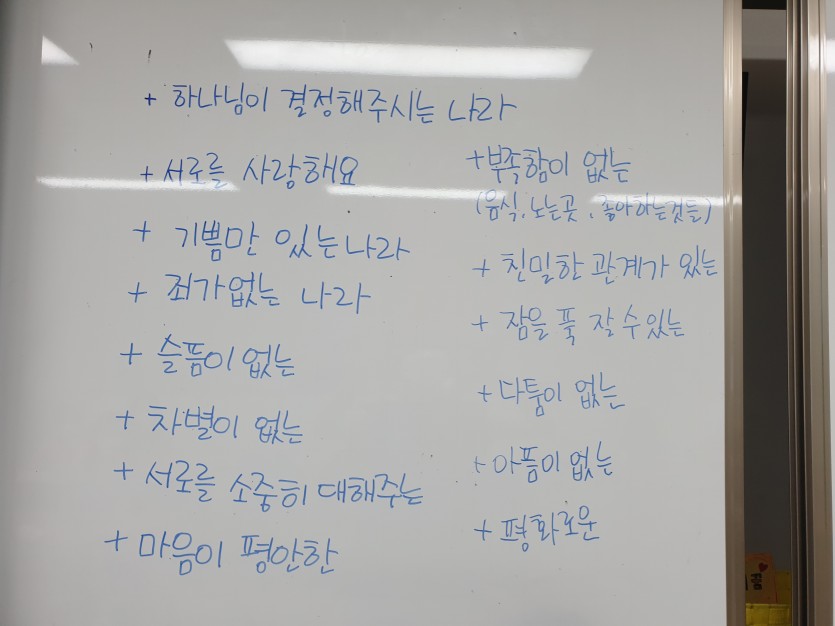 + 하나님이 결정해주시는 나라
+ 서로를 사랑해요
+ 기쁨만 있는 나라
+ 죄가 없는 나라
+ 슬픔이 없는
+ 차별이 없는
+ 서로를 소중히 대해주는
+ 마음이 평안한
+ 부족함이 없는
(음식, 노는곳, 좋아하는것들)
+ 친밀한 관계가 있는
+ 잠을 푹 잘 수 있는
+ 다툼이 없는
+ 아픔이 없는
+ 평화로운